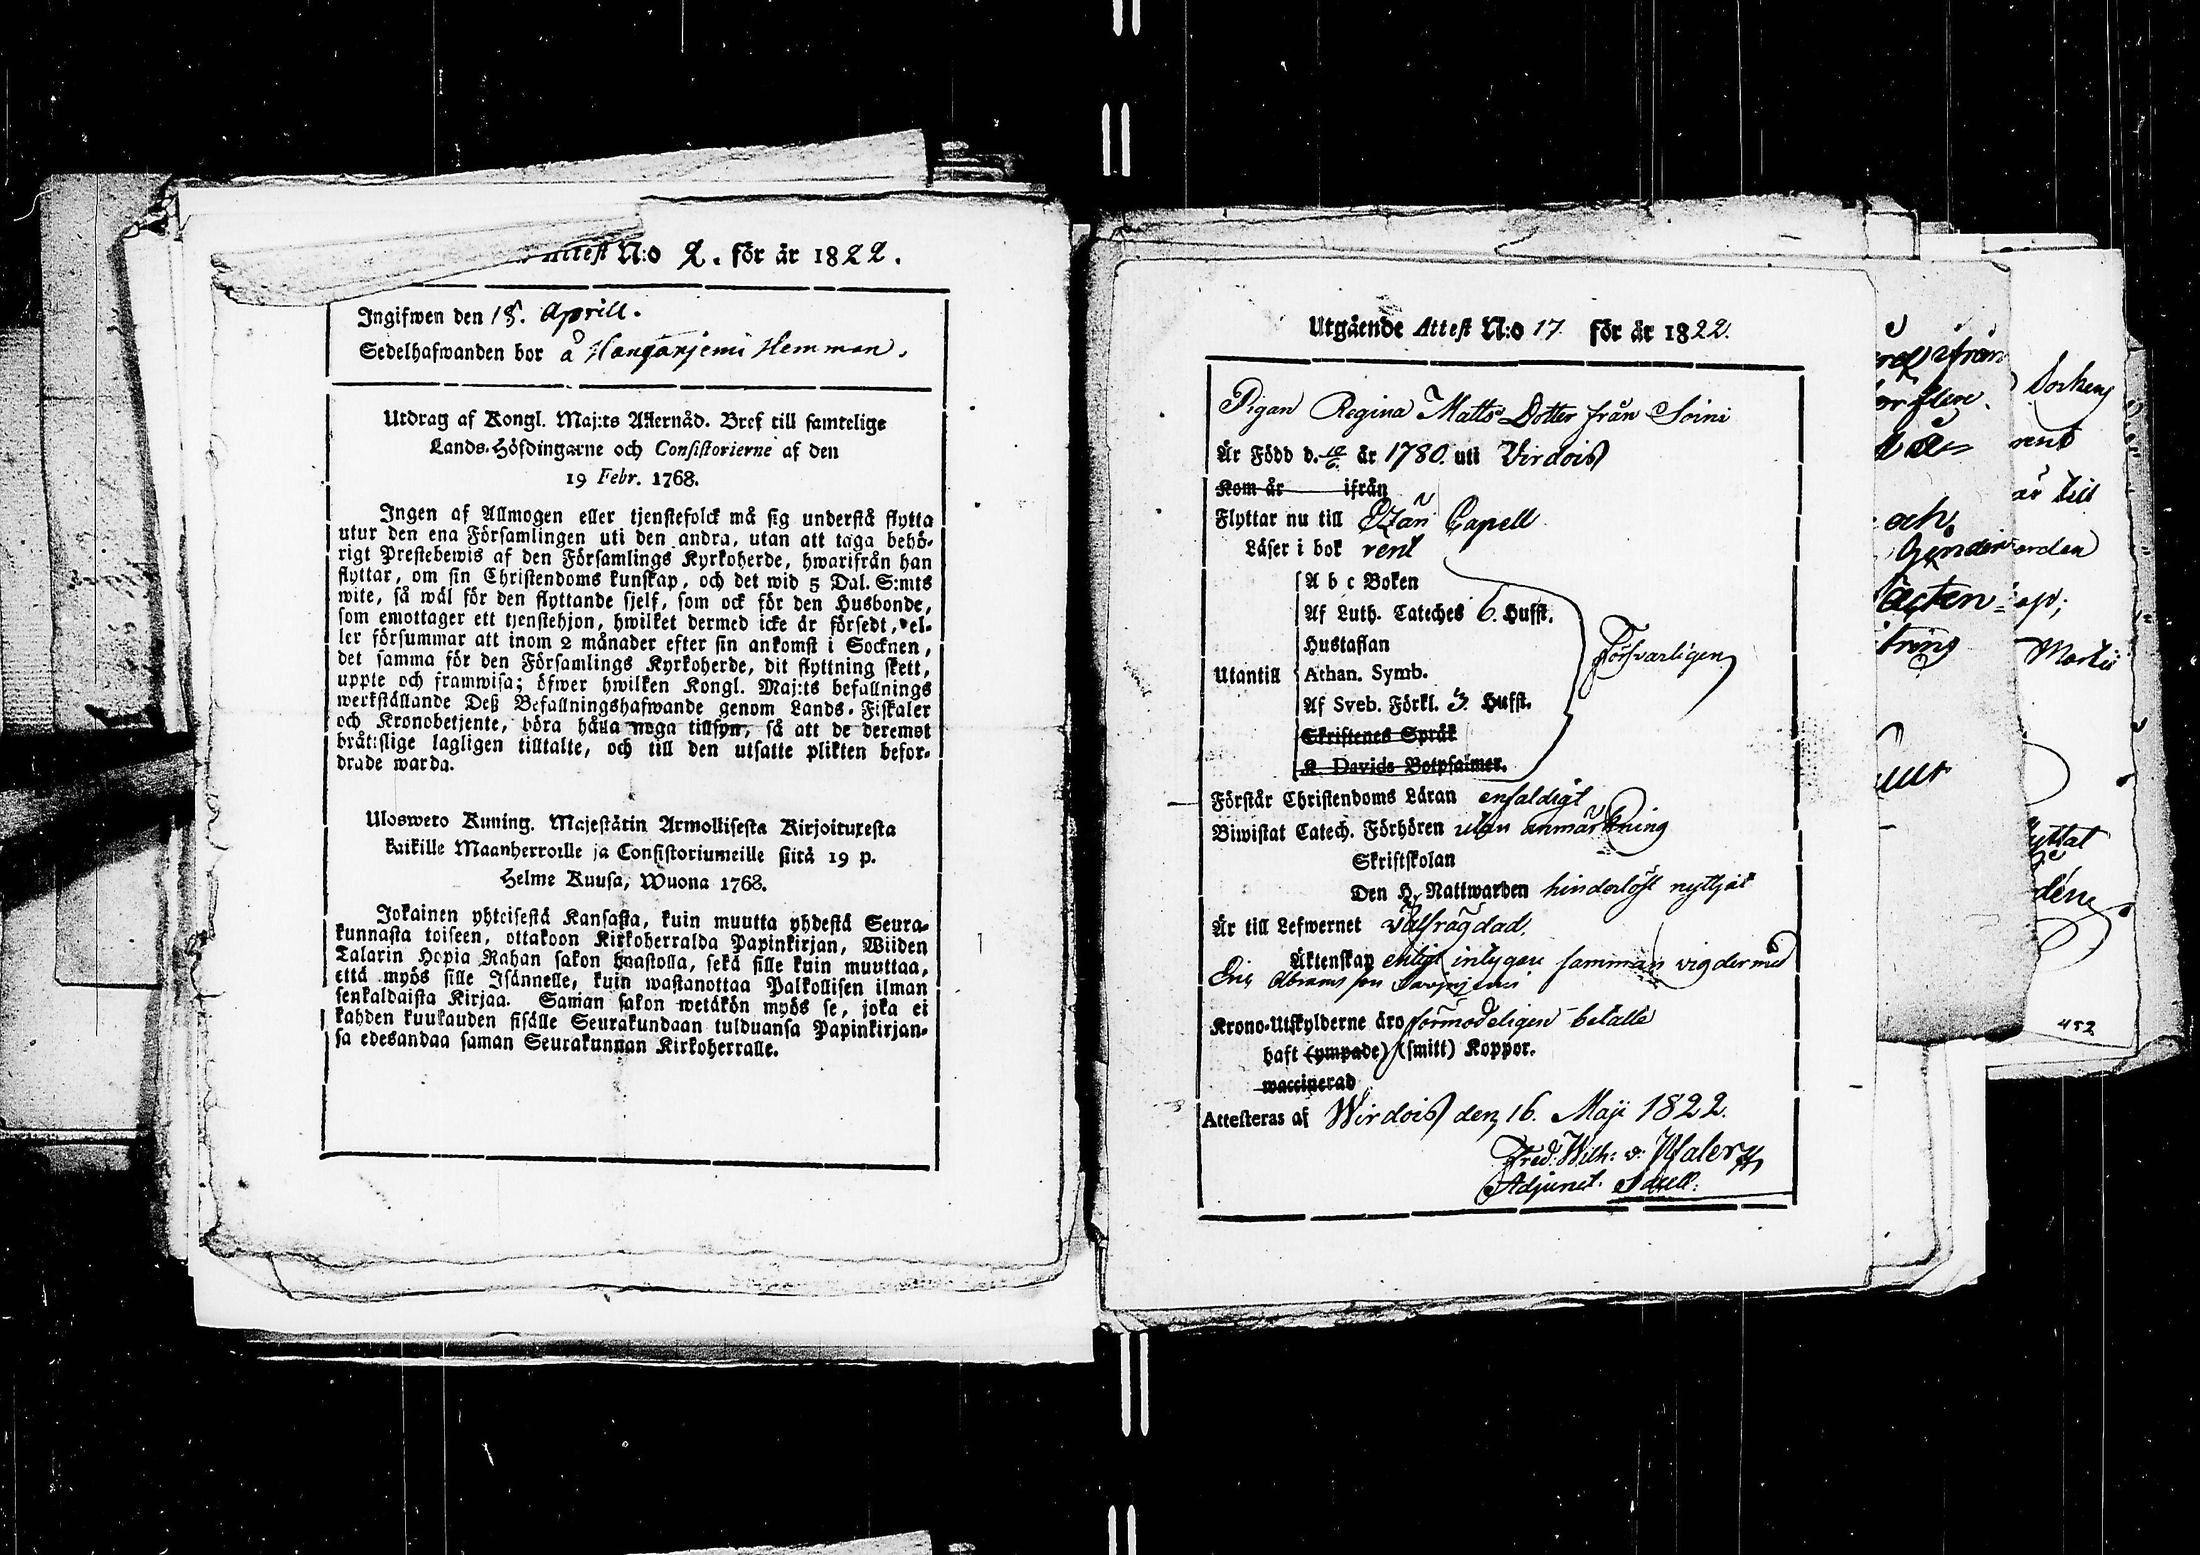 Attest N:o 2. för år 1822.
Ingifwen den 18. Aprill.
Sedelhafwanden bor å Hemman.
Utdrag af Kongl. Maj:ts Allernåd. Bref till samtelige
Lands-Höfdingarne och Consistorierne af den
19 Febr. 1768.
Ingen af Allmogen eller tjenstefolck må sig understå flytta
utur den ena Församlingen uti den andra, utan att taga behö-
rigt Prestebewis af den Församlings Kyrkoherde, hwarifrån han
flyttar, om sin Christendoms kunskap, och det wid 5 Dal. S:mts
wite, så wäl för den flyttande sjelf, som ock för den Husbonde,
som emottager ett tjenstehjon, hwilket dermed icke är försedt, el-
ler försummar att inom 2 månader efter sin ankomst i Socknen,
det samma för den Församlings Kyrkoherde, dit flyttning skett,
uppte och framwisa; öfwer hwilken Kongl. Maj:ts befallnings
werkställande Deß Befallningshafwande genom Lands-Fiskaler
och Kronobetjente, böra hålla noga tillsyn, så att de deremot
bråtslige lagligen tilltalte, och till den utsatte plikten befor-
drade warda.
Uloswero Kuning. Majestätin Armollisesta Kirjoituxesta
kaikille Maanherroille ja Consistoriumeille siitä 19 p.
Helme Kuusa, Wuona 1768.
Jokainen yhteisestä Kansasta, kuin muutta yhdestä Seura-
kunnasta toiseen, ottakoon Kirkoherralda Papinkirjan, Wiiden
Talarin Hopia Rahan sakon haastolla, sekä sille kuin muuttaa,
että myös sille Isännelle, kuin wastanottaa Palkollisen ilman
senkaldaista Kirjaa. Saman sakon wetäkön myös se, joka ei
kahden kuukauden sisälle Seurakundaan tulduansa Papinkirjan-
sa edesandaa saman Seurakunnan Kirkoherralle.
Utgående Attest N:o 17 för år 1822.
Pigan Regina Matts Dotter från Soini
Är Född d. 12/6. år 1780. uti Virdois
Kom år ifrån
Flyttar nu till Capell
Läser i bok rent
A b c Boken
Af Luth. Cateches 6. Hufst.
Hustaflan
Utantill Athan. Symb.
Försvarligen
Af Sveb. Förkl. 3. Hufst.
Skriftenes Språk
K. Davids Botpsalmer.
Förstår Christendoms Läran enfaldigt
Biwistat Catech. Förhören utan anmärkning
Skriftskolan
Den H. Nattwarden hinderlöst nyttjat
Är till Lefwernet välfrägdad.
Äktenskap enligt intygen samman vigder med
Eric Abramsson
Krono-Utskylderne äro förmodeligen betalte
haft (ympade) (smitt) Koppor.
waccinerad
Attesteras af Wirdois den 16. Maji 1822.
Fred: Wilh: v: Pfaler
Adjunct.
ifrån
och
Socknen
rent
är till
Martii
452